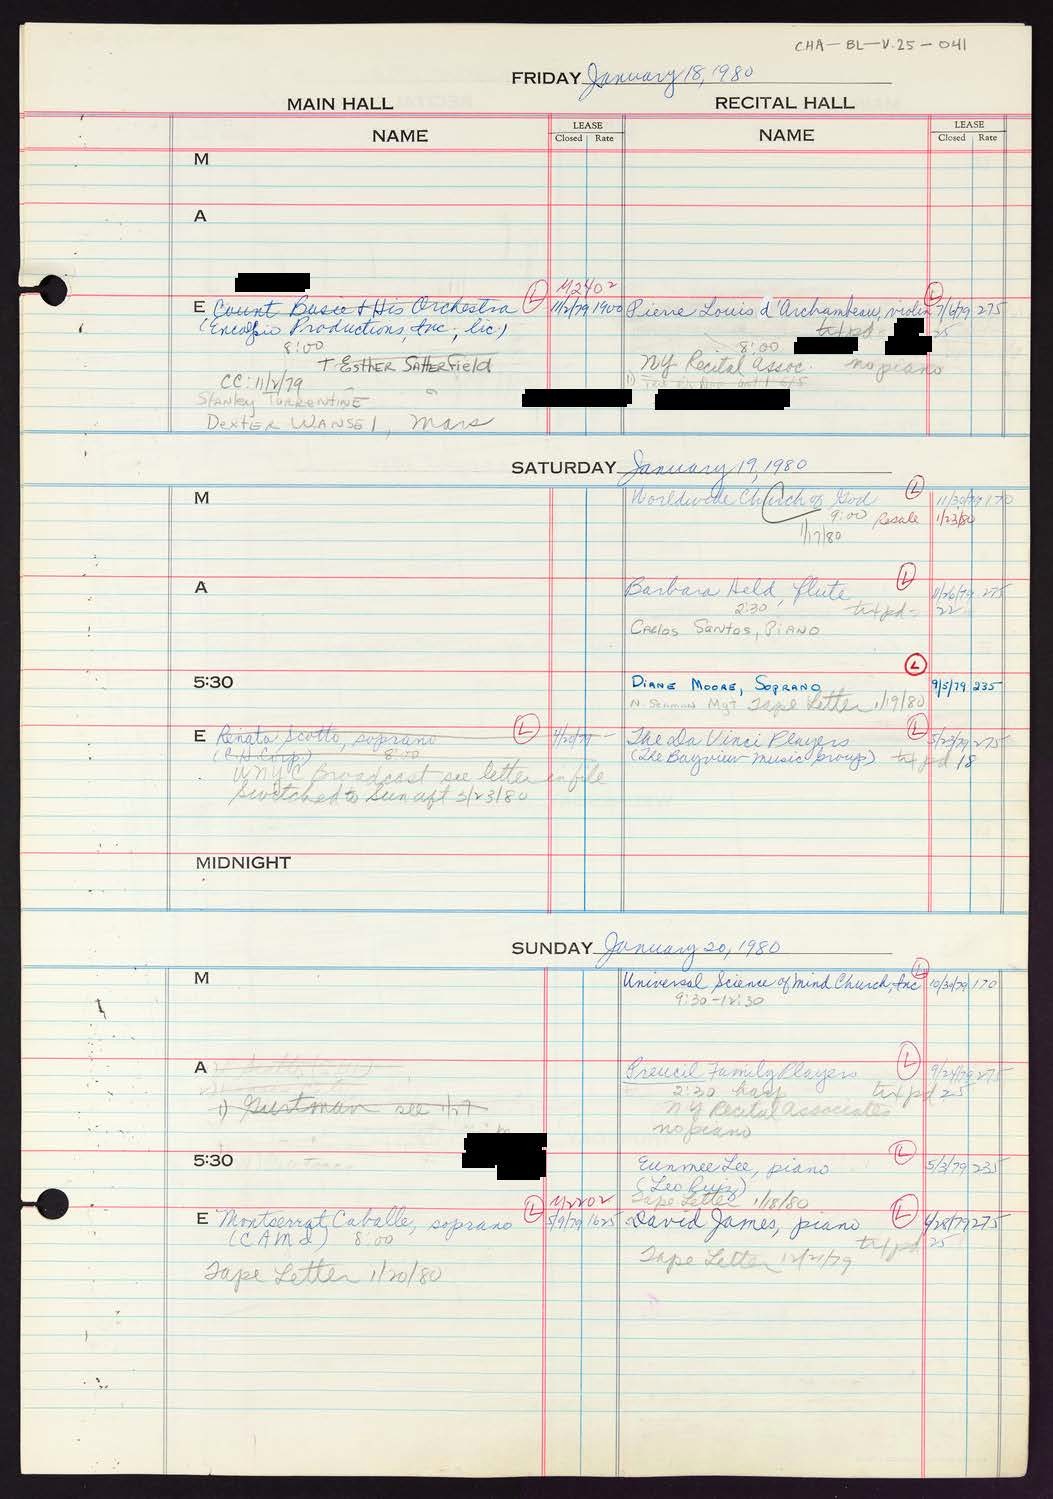 CHA-BL-V.25-041
FRIDAY January 18, 1980
MAIN HALL
RECITAL HALL
NAME
LEASE
Closed Rate
NAME
LEASE
Closed Rate
M
A
M2402
E Count Basie & His Orchestra L 11/2/79 1900
(Encalpio Productions, Inc., lic.)
8:00
+ ESTHER SATTERFIELD
CC: 11/2/79
STANLEY TURRENTINE
DEXTER WANSEL, Mars
Pierre Louis d'Archambeau, violin L 7/6/79 275
txt pd - 25
8:00
NY Recital Assoc. no piano
SATURDAY January 19, 1980
M
Worldwide Church of God L 11/30/79 170
9:00 Resale 1/23/80
1/17/80
A
Barbara Held, flute L 11/26/79 275
2:30 txt pd - 22
CARLOS SANTOS, PIANO
5:30
DIANE MOORE, SOPRANO L 9/5/79 235
Mgt Tape Letter 1/19/80
E Renata Scotto, soprano L
(CH Corp) 8:00
WNYC Broadcast see letter in file
switched to Sun aft 3/23/80
The Da Vinci Players L 5/23/79 275
(The Bayview Music Group) txt pd 18
MIDNIGHT
SUNDAY January 20, 1980
M
Universal Science of Mind Church, Inc L 10/30/79 170
9:30-12:30
A
1) Guttman see 1/27
Preucil Family Players L 9/24/79 275
2:30 harp txt pd 25
NY Recital Associates
no piano
5:30
Eunmee Lee, piano L 5/3/79 235
(Leo Ruiz)
Tape Letter 1/18/80
M2202
E Montserrat Caballe, soprano L 5/9/79 1625
(CAMI) 8:00
Tape Letter 1/20/80
David James, piano L 4/28/79 275
txt pd 25
Tape Letter 12/21/79